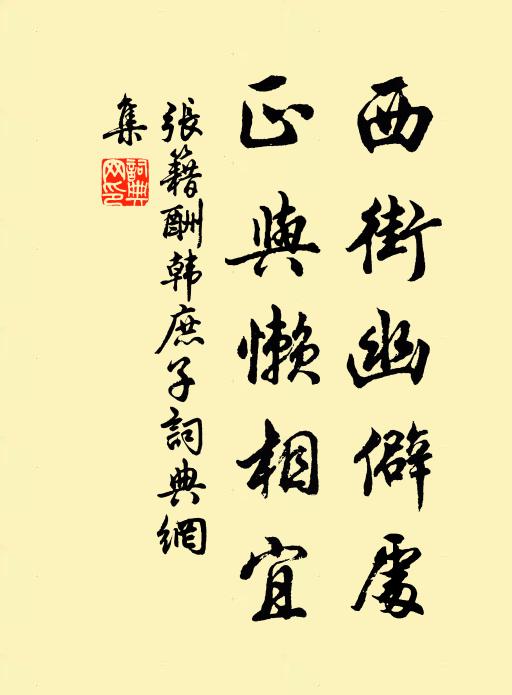 西街幽僻處
正與懶相宜
張籍酬韩庶子詞典網
集
詞典網印